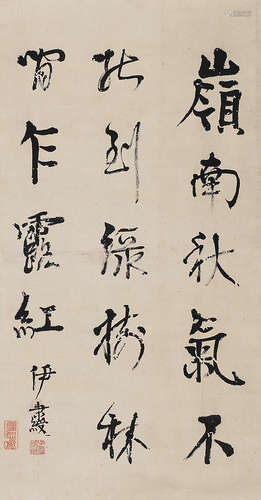 嶺南秋氣不
能到綠樹林
間乍露紅 伊秉綬